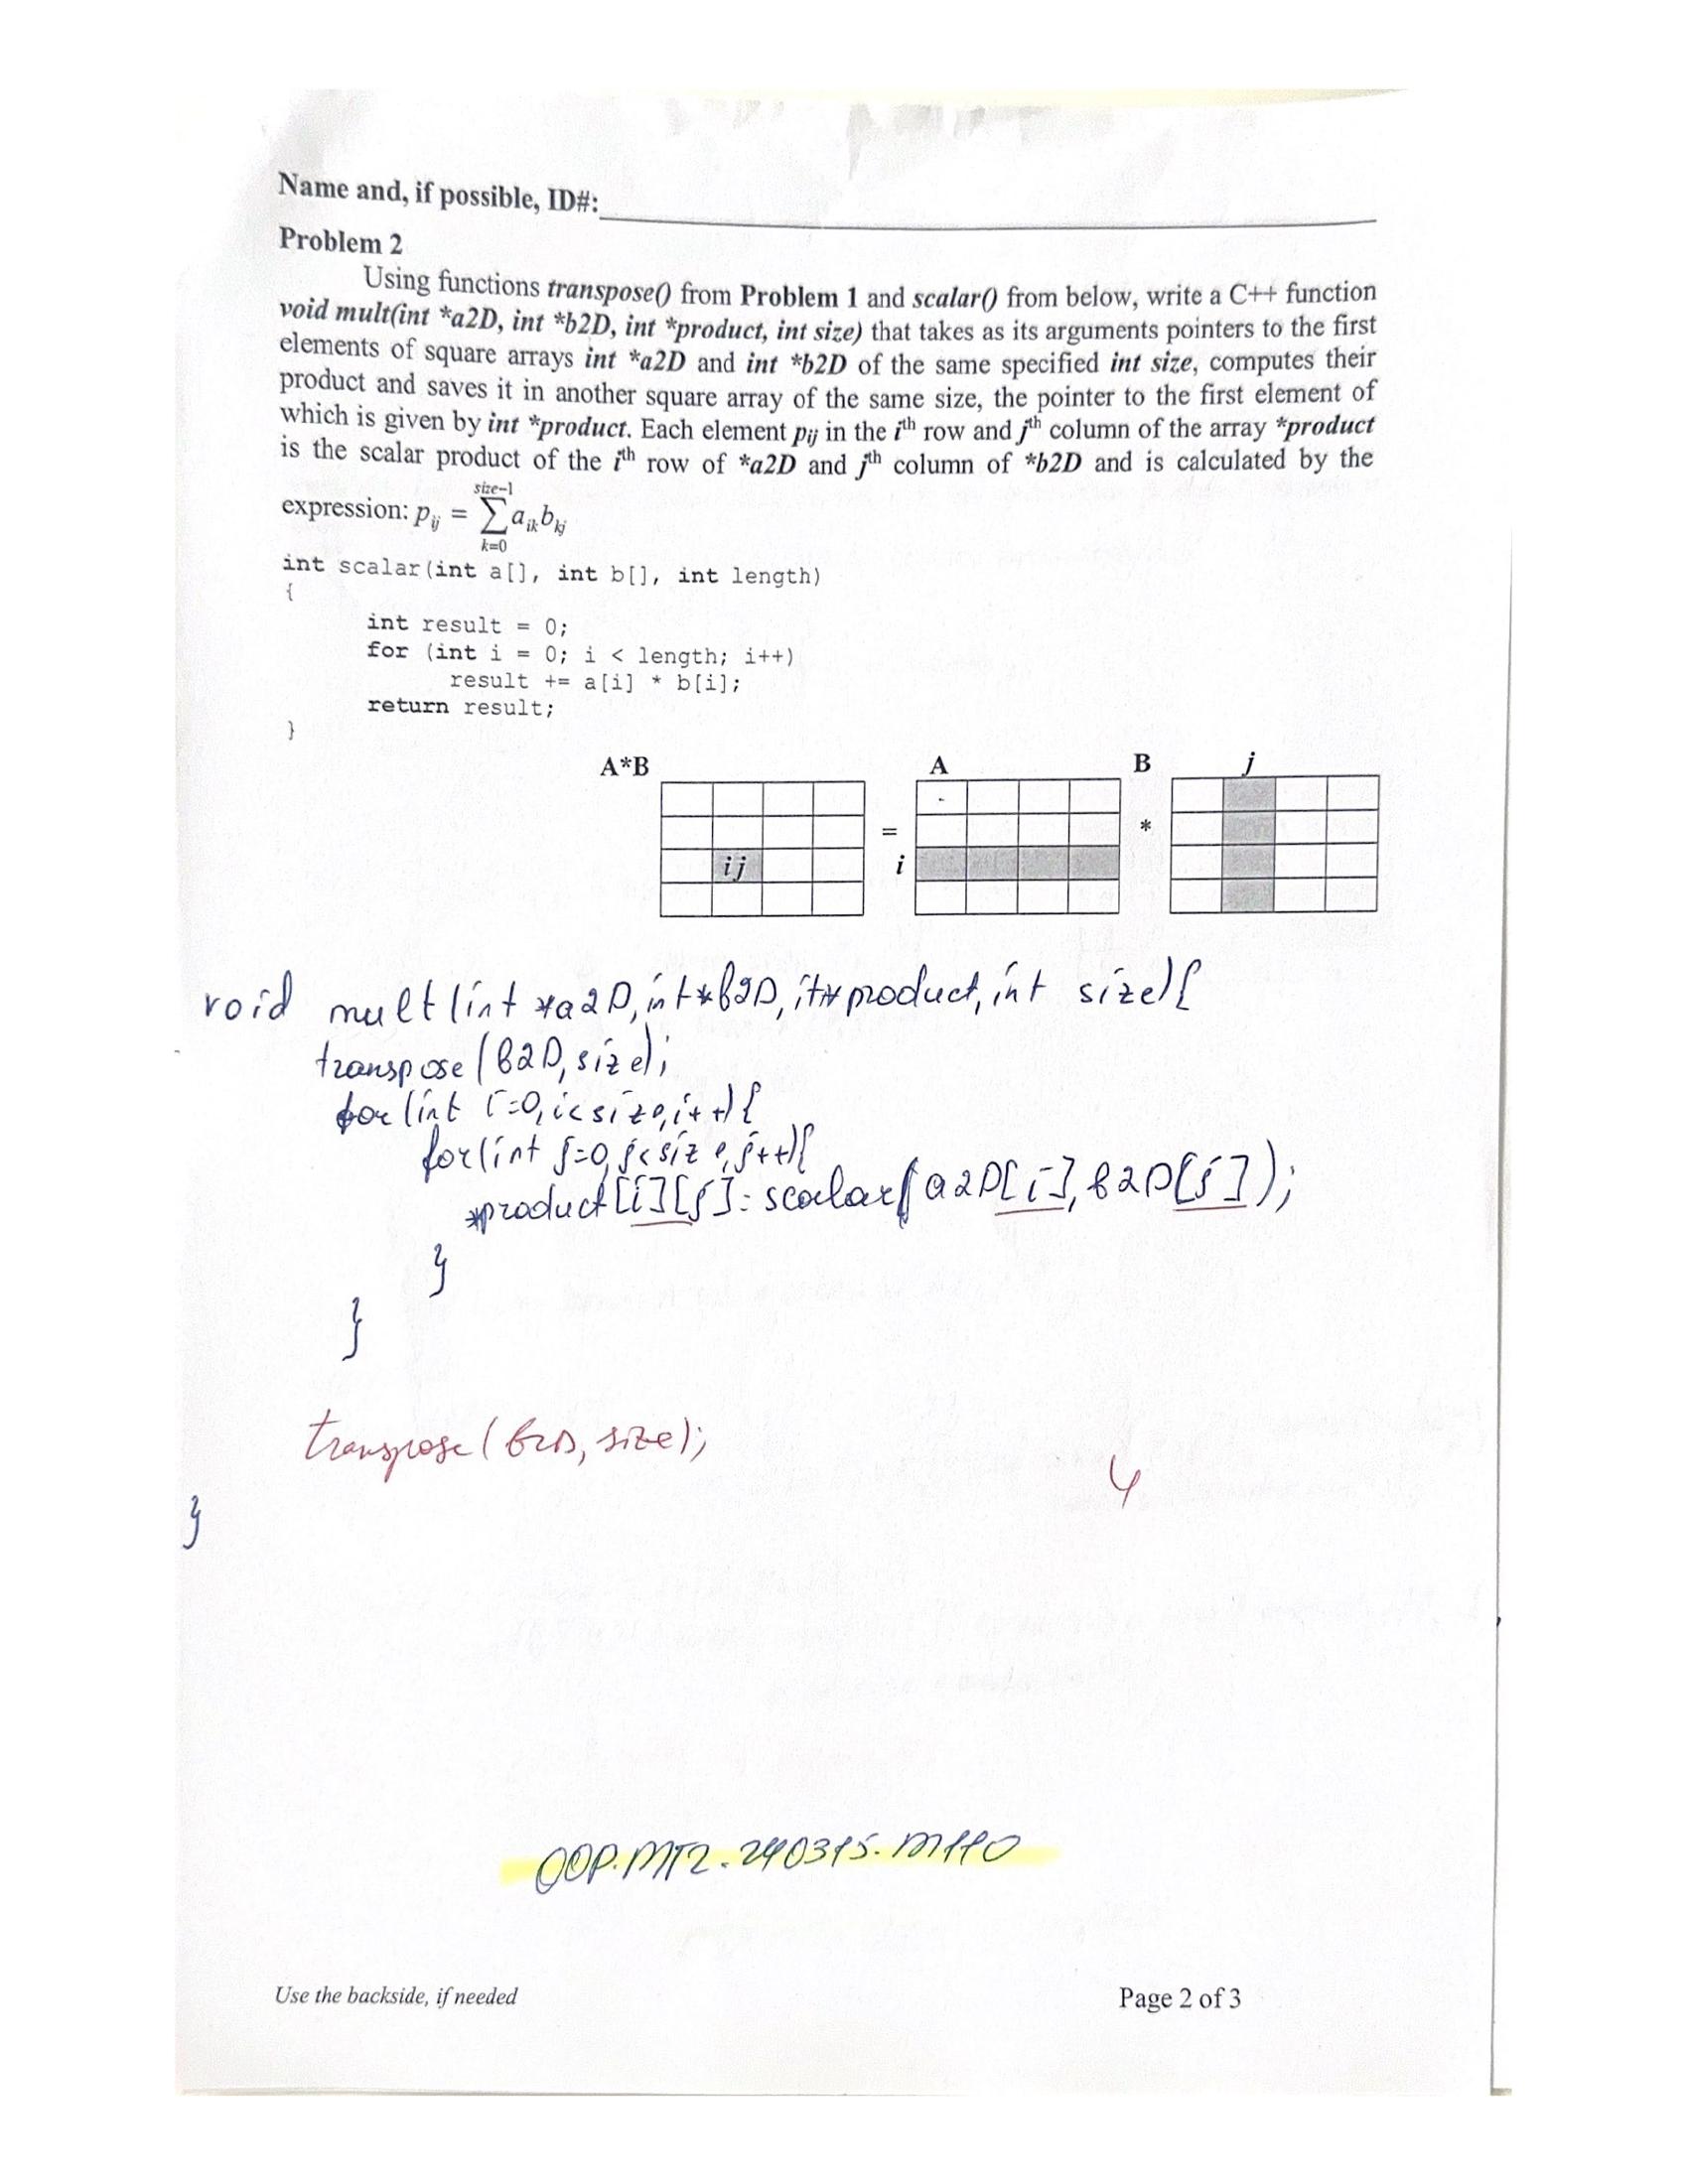 Name and, if possible, ID#:
Problem 2
Using functions transpose() from Problem 1 and scalar() from below, write a C++ function
void mult(int *a2D, int *b2D, int *product, int size) that takes as its arguments pointers to the first
elements of square arrays int *a2D and int *b2D of the same specified int size, computes their
product and saves it in another square array of the same size, the pointer to the first element of
which is given by int *product. Each element pij in the ith row and jth column of the array *product
is the scalar product of the ith row of *a2D and jth column of *b2D and is calculated by the
expression: pij = size-1 ∑ k=0 aik bkj
int scalar(int a[], int b[], int length)
{
int result = 0;
for (int i = 0; i < length; i++)
result += a[i] * b[i];
return result;
}
A*B A B j
= *
i j i
void mult(int *a2D, int*b2D, it*product, int size){
transpose(b2D, size);
for(int i=0, i<size, i++){
for(int j=0, j<size, j++){
*product[i][j]=scalar(a2D[i], b2D[j]);
}
}
transpose(b2D, size);
4
}
OOP.MT2.240315.M110
Use the backside, if needed Page 2 of 3